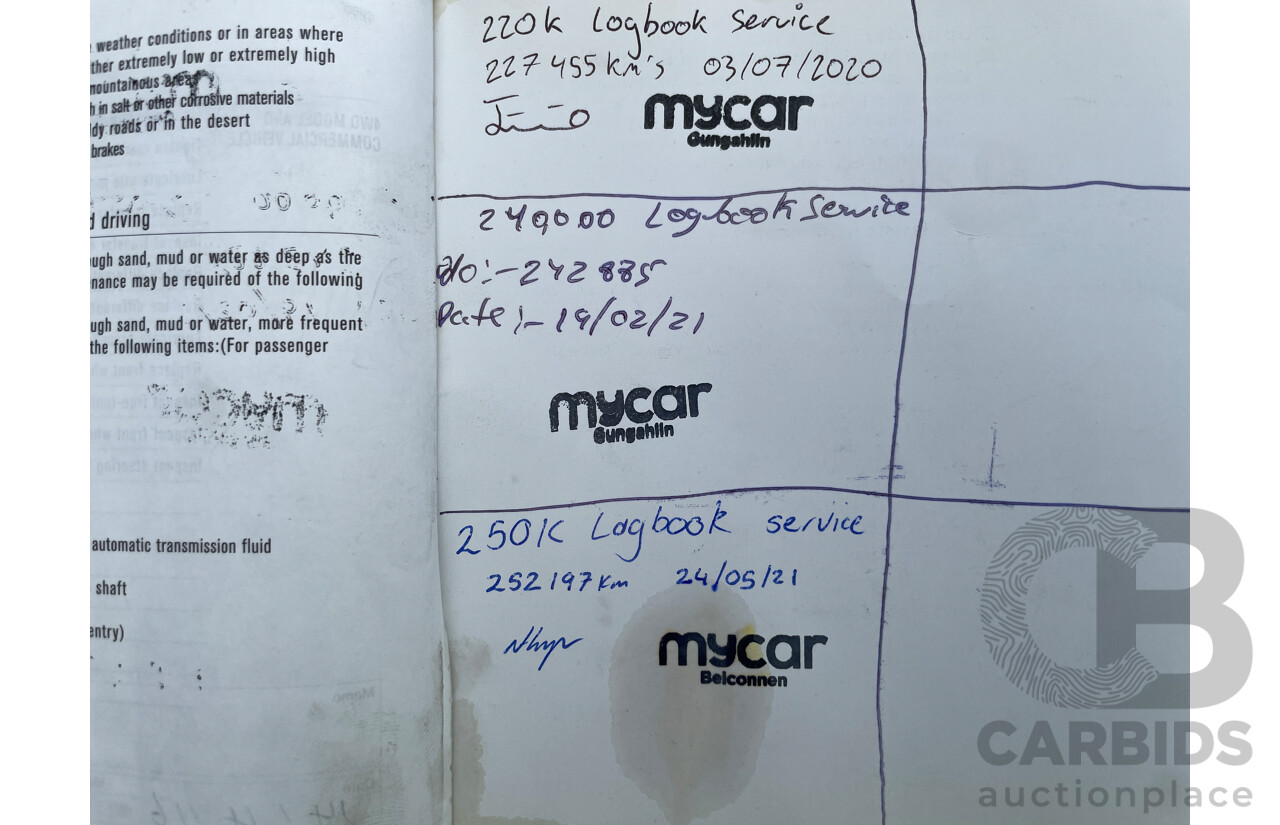 weather conditions or in areas where
ther extremely low or extremely high
mountainous areas
h in salt or other corrosive materials
dy roads or in the desert
brakes
d driving
ugh sand, mud or water as deep as the
nance may be required of the following
ugh sand, mud or water, more frequent
the following items:(For passenger
automatic transmission fluid
shaft
entry)
220K Logbook Service
227455km's 03/07/2020
mycar
Gungahlin
240000 Logbook Service
242885
Date:- 19/02/21
mycar
Gungahlin
250K Logbook service
252197km 24/05/21
mycar
Belconnen
CB
CARBIDS
auctionplace